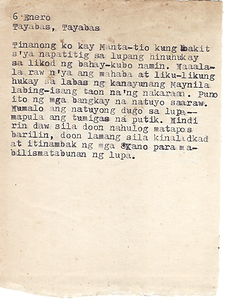 6 Enero
Tayabas, Tayabas
Tinanong ko kay Manta-tio kung bakit
s'ya napatitig sa lupang hinuhukay
sa likod ng bahay-kubo namin. Naaala-
la raw n'ya ang mahaba at liku-likung
hukay sa labas ng kanayunang Maynila
labing-isang taon na'ng nakaraan. Puno
ito ng mga bangkay na natuyo saaraw.
Humalo ang natuyong dugo sa lupa--
mapula ang tumigas na putik. Hindi
rin daw sila doon nahulog matapos
barilin, doon lamang sila kinaladkad
at itinambak ng mga kano para ma-
bilismatabunan ng lupa.